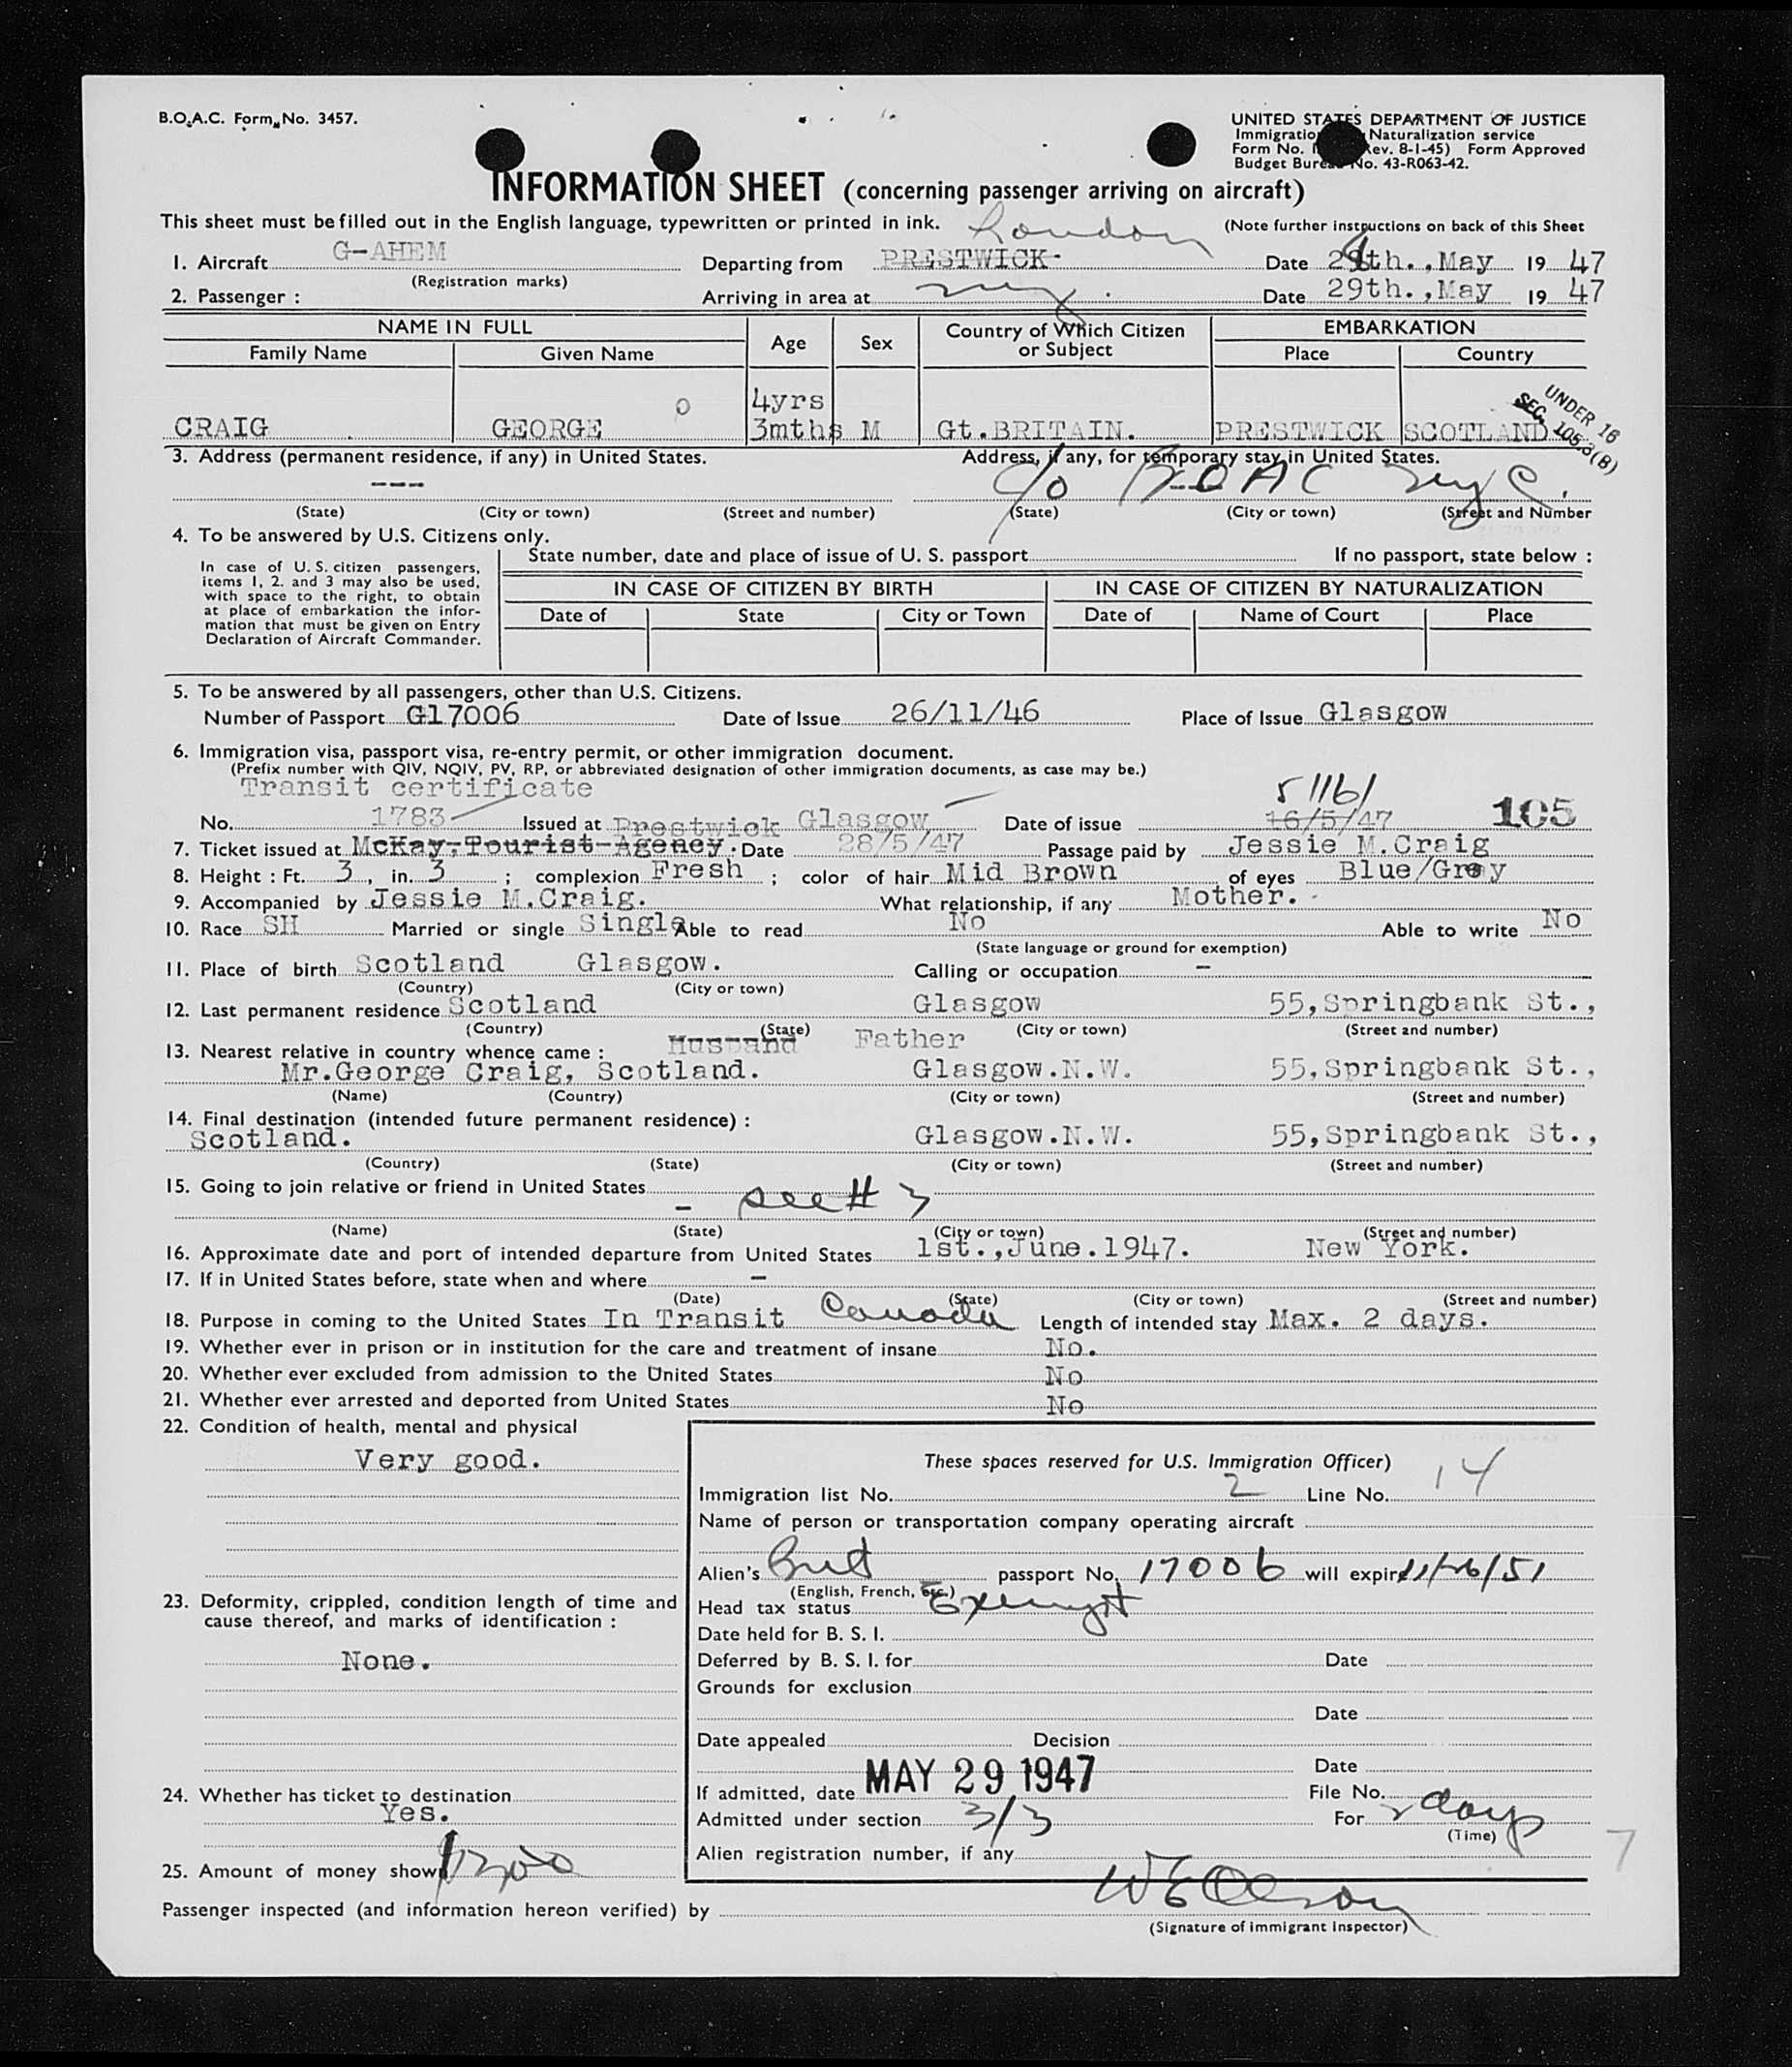 B.O.A.C. Form No. 3457.
UNITED STATES DEPARTMENT OF JUSTICE
Immigration Naturalization service
Form No. I (Rev. 8-1-45) Form Approved
Budget Bureau No. 43-R063-42.
INFORMATION SHEET (concerning passenger arriving on aircraft)
This sheet must be filled out in the English language, typewritten or printed in ink. (Note further instructions on back of this Sheet
London
1. Aircraft G-AHEM Departing from PRESTWICK Date 28th.,May 19 47
(Registration marks)
2. Passenger : Arriving in area at Date 29th.,May 19 47
NAME IN FULL Age Sex Country of Which Citizen or Subject EMBARKATION
Family Name Given Name Place Country
UNDER 16
SEC 105.3(B)
4yrs
CRAIG GEORGE 3mths M Gt.BRITAIN. PRESTWICK SCOTLAND
3. Address (permanent residence, if any) in United States. Address, if any, for temporary stay in United States.
--- c/o BOAC nyc.
(State) (City or town) (Street and number) (State) (City or town) (Street and Number
4. To be answered by U.S. Citizens only.
State number, date and place of issue of U. S. passport If no passport, state below :
In case of U. S. citizen passengers,
items 1, 2. and 3 may also be used,
with space to the right, to obtain
at place of embarkation the infor-
mation that must be given on Entry
Declaration of Aircraft Commander.
IN CASE OF CITIZEN BY BIRTH IN CASE OF CITIZEN BY NATURALIZATION
Date of State City or Town Date of Name of Court Place
5. To be answered by all passengers, other than U.S. Citizens.
Number of Passport G17006 Date of Issue 26/11/46 Place of Issue Glasgow
6. Immigration visa, passport visa, re-entry permit, or other immigration document.
(Prefix number with QIV, NQIV, PV, RP, or abbreviated designation of other immigration documents, as case may be.)
Transit certificate
No. 1783 Issued at Prestwick Glasgow Date of issue 16/5/47 105
7. Ticket issued at McKay, Tourist Agency. Date 28/5/47 Passage paid by Jessie M.Craig
8. Height : Ft. 3, in. 3 ; complexion Fresh ; color of hair Mid Brown of eyes Blue/Grey
9. Accompanied by Jessie M.Craig. What relationship, if any Mother.
10. Race SH Married or single Single Able to read No Able to write No
(State language or ground for exemption)
11. Place of birth Scotland Glasgow. Calling or occupation -
(Country) (City or town)
12. Last permanent residence Scotland Glasgow 55,Springbank St.,
(Country) (State) (City or town) (Street and number)
13. Nearest relative in country whence came : Husband Father
Mr.George Craig, Scotland. Glasgow.N.W. 55,Springbank St.,
(Name) (Country) (City or town) (Street and number)
14. Final destination (intended future permanent residence) :
Scotland. Glasgow.N.W. 55,Springbank St.,
(Country) (State) (City or town) (Street and number)
15. Going to join relative or friend in United States
- see # 3
(Name) (State) (City or town) (Street and number)
16. Approximate date and port of intended departure from United States 1st.,June.1947. New York.
17. If in United States before, state when and where -
(Date) (State) (City or town) (Street and number)
18. Purpose in coming to the United States In Transit Canada Length of intended stay Max. 2 days.
19. Whether ever in prison or in institution for the care and treatment of insane No.
20. Whether ever excluded from admission to the United States No
21. Whether ever arrested and deported from United States No
22. Condition of health, mental and physical
Very good.
These spaces reserved for U.S. Immigration Officer)
Immigration list No. 2 Line No. 14
Name of person or transportation company operating aircraft
Alien's Brit passport No. 17006 will expire 11/26/51
(English, French, etc.)
23. Deformity, crippled, condition length of time and
cause thereof, and marks of identification :
None.
Head tax status Exempt
Date held for B. S. I.
Deferred by B. S. I. for Date
Grounds for exclusion
Date
Date appealed Decision
Date
24. Whether has ticket to destination
Yes.
If admitted, date MAY 29 1947 File No.
Admitted under section 3/3 For 2 days
(Time)
7
Alien registration number, if any
25. Amount of money shown
Passenger inspected (and information hereon verified) by W E Olson
(Signature of immigrant inspector)